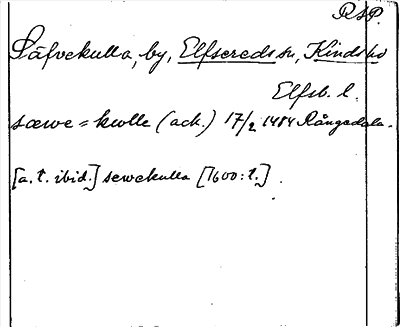 RSP.
Säfvekulla, by, Elfsereds sn, Kinds hd
Elfsb. l.
sæwe = kwlle (ack.) 17/2 1484 Rångedala.
[a. t. ibid.] sewekulla [1600: t.].